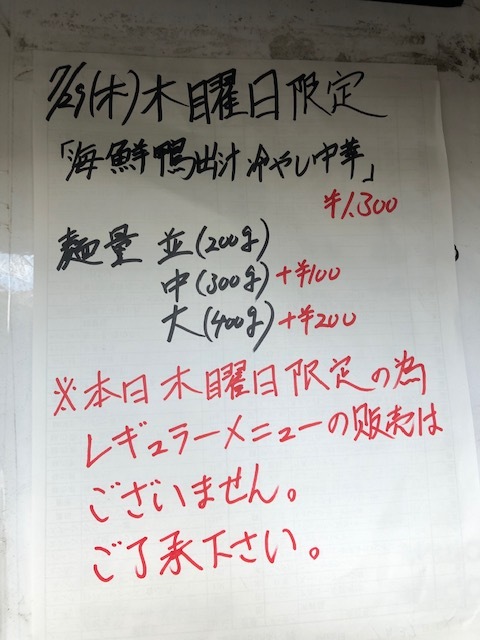 7/29(木)木曜日限定
「海鮮鴨出汁冷やし中華」
¥1.300
麺量 並(200g)
中(300g)+¥100
大(400g)+¥200
※本日木曜日限定の為
レギュラーメニューの販売は
ございません。
ご了承下さい。